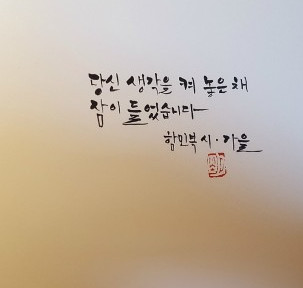 당신 생각을 켜 놓은 채
잠이 들었습니다
함민복 시·가을